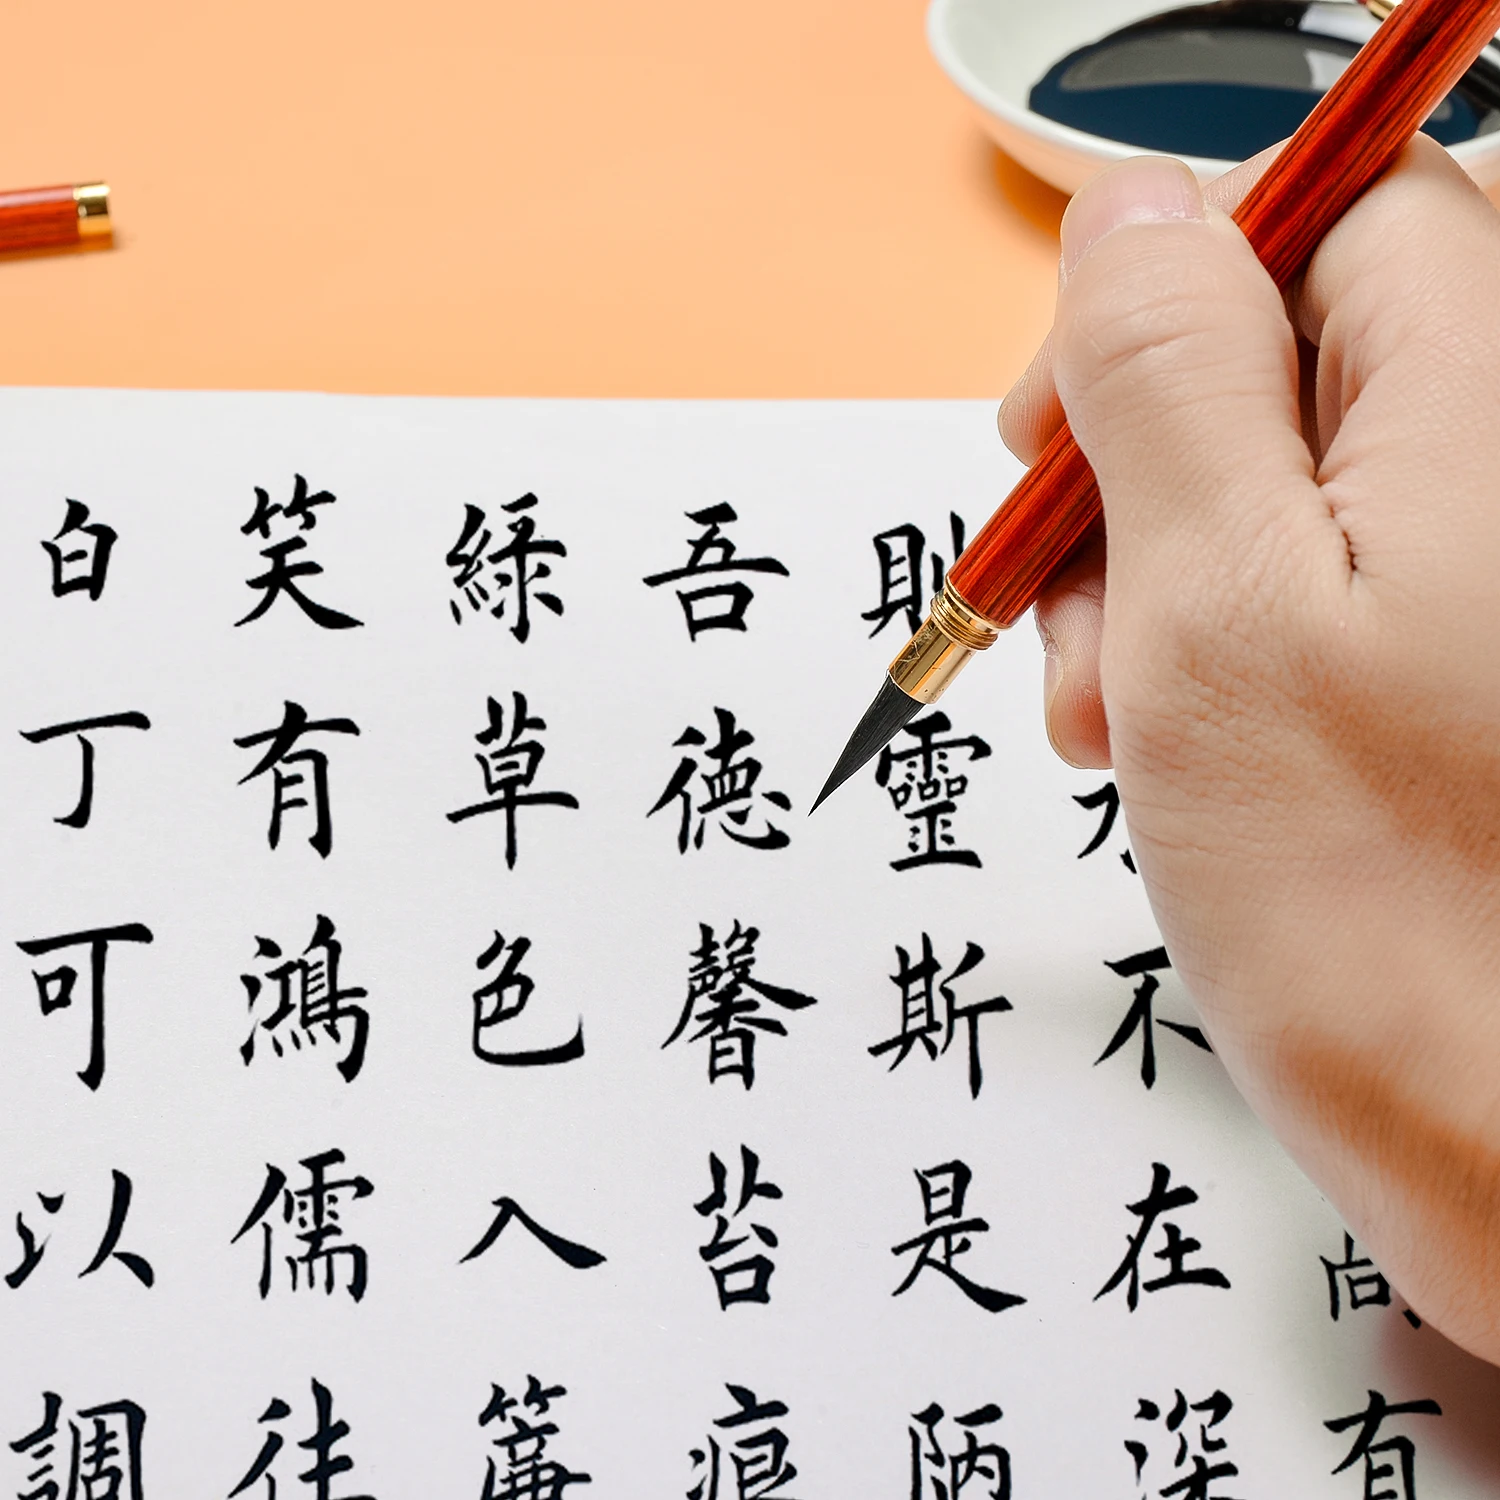 有
不在深
則靈斯是陋
吾德馨苔痕
綠草色入簾
笑有鴻儒往
白丁可以調